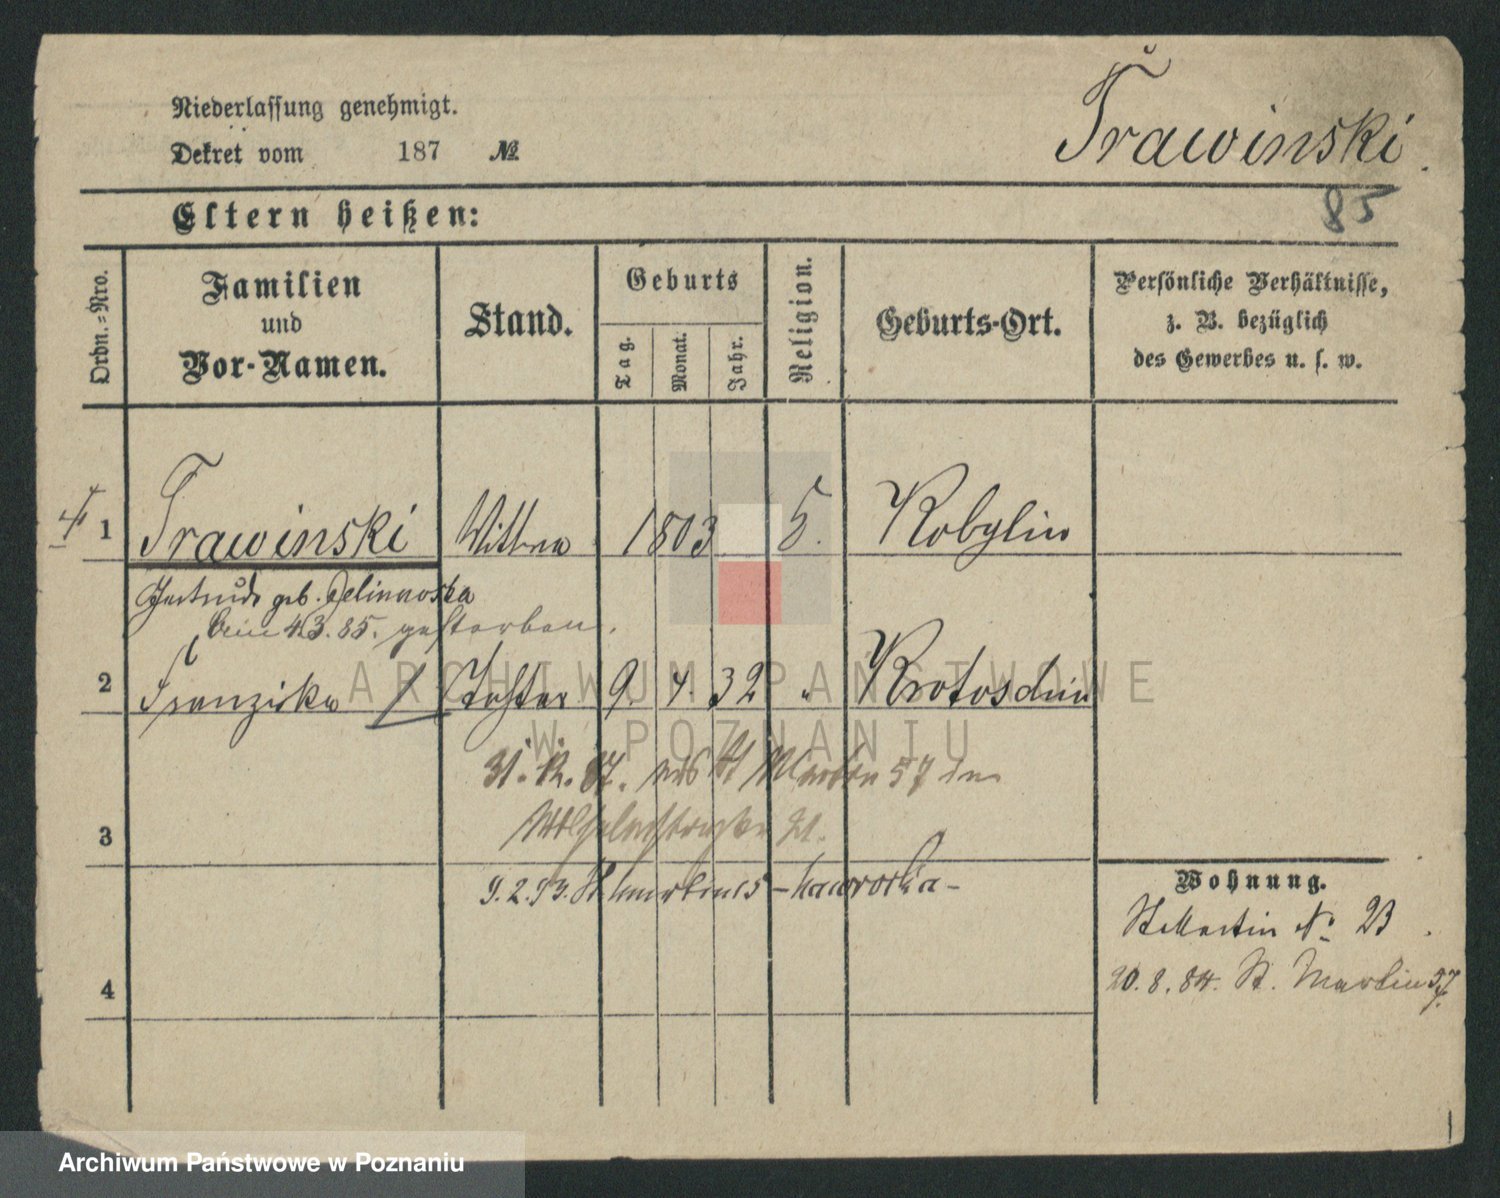 Trawinski
Niederlassung genehmigt.
Dekret vom 187 №
85
Eltern heißen:
Ordn.-Nro.
Familien
und
Vor-Namen.
Stand.
Geburts
Tag.
Monat.
Jahr.
Religion.
Geburts-Ort.
Persönliche Verhältnisse,
z. B. bezüglich
des Gewerbes u. s. w.
1 Trawinski Wittwe 1803 Kobylin
Gertrude geb.
4.3.85. gestorben.
2 Franziska Tochter 9. 4. 32 " Krotoschin
ARCHIWUM PAŃSTWOWE
W POZNANIU
31.12.87. St Martin 57 in
Wilhelmstraße 21.
3
9.2.93. St. Martin 5 - Nawrocka -
Wohnung.
St Martin No 23
20.8.84. St. Martin 57.
4
Archiwum Państwowe w Poznaniu